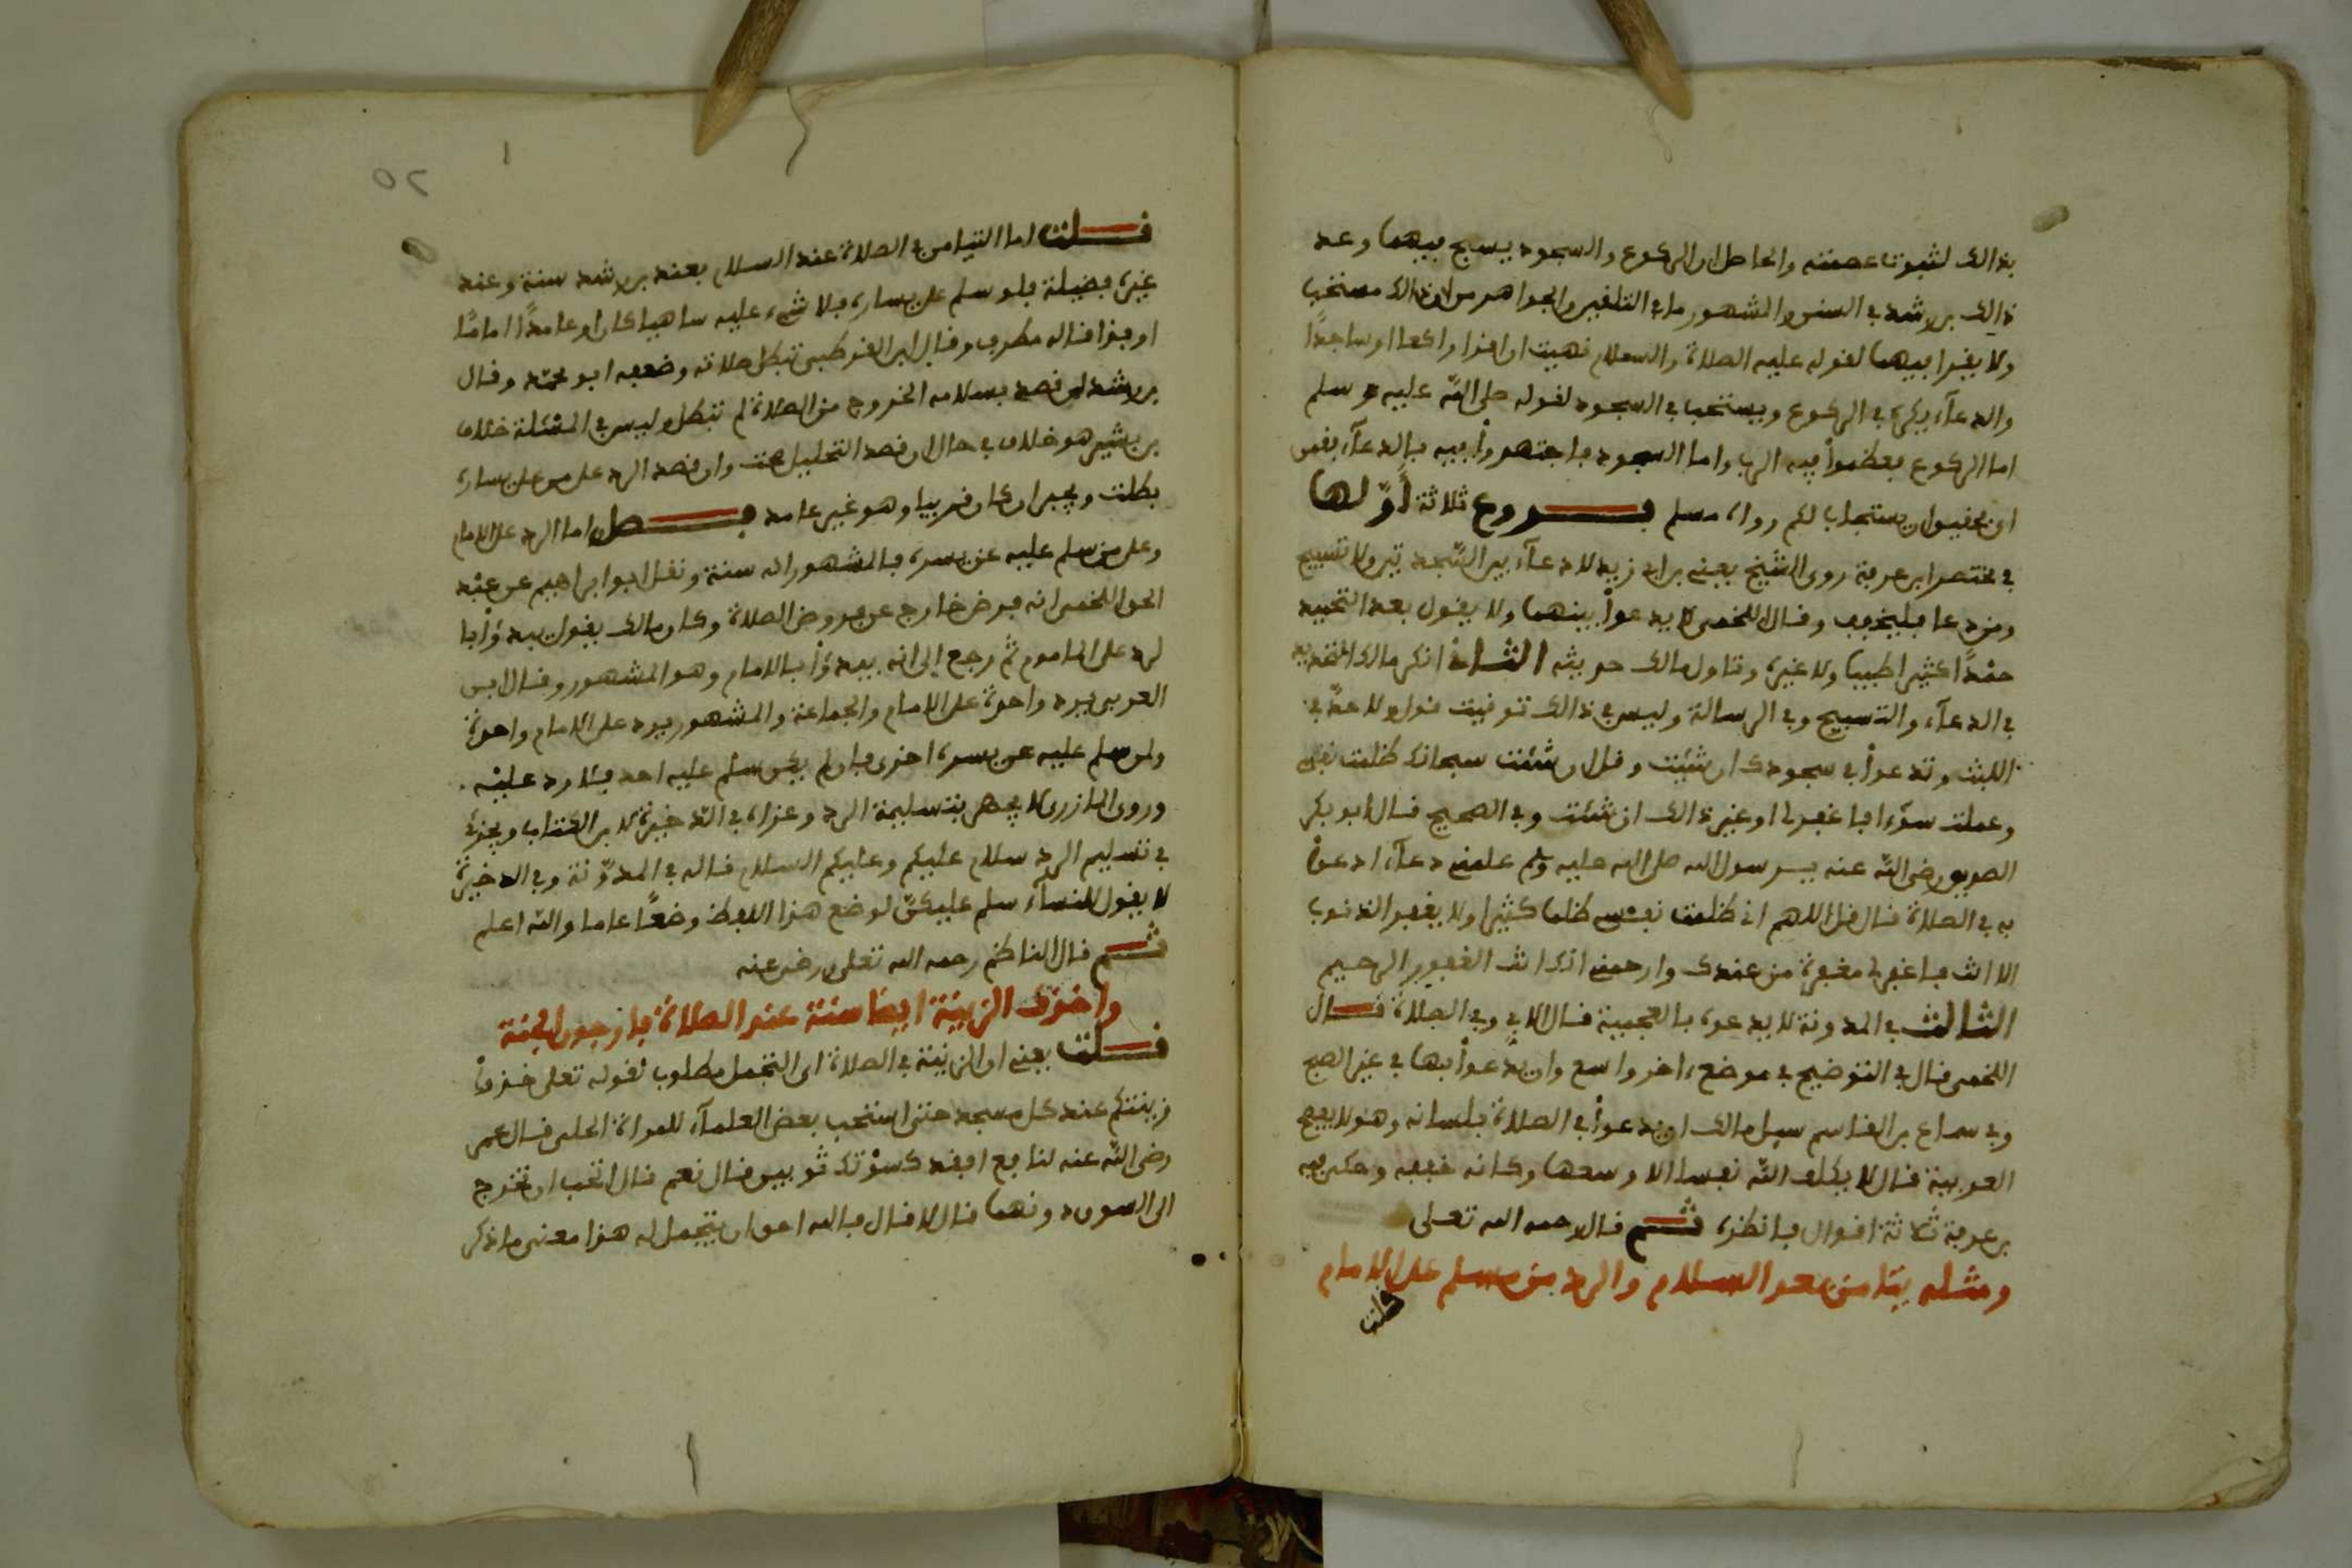 بذالك لثبوت عصمته والحاصل ان الركوع والسجود يسبح فيهما وعد
ذالك بن رشد في السنن والمشهور ما في التلفين والجواهر من ان ذالك مستحب
ولا يقرا فيهما لقوله عليه الصلاة والسلام نهيت ان اقرا راكعا او ساجدًا
والدعآء يكره في الركوع ويستحب في السجود لقوله صلى الله عليه وسلم
اما الركوع فعظموا فيه الرب واما السجود فاجتهدوا فيه بالدعآء فقمن
اي حفيق ان يستجاب لكم رواه مسلم فروع ثلاثة أوّلها
في مختصر ابن عرفة روى الشيخ يعني بن ابي زيد لا دعآء بين السّجدتين ولا تسبيح
ومن دعا فليخفف وقال اللخمي لا يدعوا بينهما ولا يقول بعد التحميد
حمْدًا كثيرا طيبا ولا غيره وتاول مالك حديثه الثاني انكر مالك التحديد
في الدعآء والتسبيح وفي الرسالة وليس في ذالك توقيت قول ولا حدّ في
اللبث وتدعوا في سجودك ان شئت وقل ان شئت سبحانك ظلمت نفسي
وعملت سوٓءا فاغفر لي او غير ذالك ان شئت وفي الصحيح قال أبو بكر
الصديق رضي الله عنه يـرسول الله صلى الله عليه وسلم علمني دعآء ادعوا
به في الصلاة قال قل اللهم اني ظلمت نفسي ظلما كثيرا ولا يغفر الذنوب
الا انت فاغفر لي مغفرة من عندك وارحمني انك انت الغفور الرحيم
الثالث في المدونة لا يدعوه بالعجمية قال الابي وفي الصلاة قال
اللخمي قال في التوضيح في موضع ءاخر واسع وان يدعوا بها في غير الصبح
وفي سماع بن القاسم سيل مالك ان يدعوا في الصلاة بلسانه وهو لا يفصح
العربية قال لا يكلف الله نفسا الا وسعها وكانه خففه وحكى فيه
بن عرفة ثلاثة اقوال فانظره ثم قال رحمه الله تعلى
ومثله تيامن بعد السلام والرد من مسلم على الامام
قلت
٥٢
قلت اما التيامن في الصلاة عند السلام فعند بن رشد سنة وعند
غيره فضيلة فلو سلم على يساره فلا شيء عليه ساهيا كان او عامدًا امامًا
او فذا قاله مطرف وقال ابن القرطبي تبطل صلاته وضعفه ابو محمّد وقال
بن رشد لمن قصد بسلامه الخروج من الصلاة لم تبطل وليس في المسْئلة خلاف
بن بشير هو خلاف في حال ان قصد التحليل صحت وان قصد الرد على من على يساره
بطلت ويجبر ان كان قريبا وهو غير عامد فصل اما الرد على الامام
وعلى من سلم عليه عن يسره فالمشهور انه سنة ونقل ابو ابراهيم عن عبْد
الحق اللخمي انه فرض خارج عن فروض الصلاة وكان مالك يقول يبدؤا با
لرد على الماموم ثم رجع إلى انه يبدؤا بالامام وهو المشهور وقال ابن
العربي يرد واحدة على الامام والجماعة والمشهور يرد على الامام واحدة
ولمن سلم عليه عن يسره اخرى فان لم يكن سلم عليه احد فلا رد عليْه
وروى المازري لا يجهر بتسليمة الرد وعزاه في الذخيرة لابن الكتاب ويجزئ
في تسليم الرد سلام عليكم وعليكم السلام قاله في المدوّنة وفي الذخيرة
لا يقول للنسآء سلم عليكنّ لوضع هذا اللفظ وضعًا عاما والله اعلم
ثم قال الناظم رحمه الله تعلى ورضي عنه
واخذك الزينة ايضا سنة عند الصلاة فارجون الجنة
قلت يعني ان الزينة في الصلاة اي التجمل مطلوب لقوله تعلى خذوا
زينتكم عند كل مسجد حتى استحب بعض العلمآء للمراة الحلي قال عمر
رضي الله عنه لنافع افقد كسوْتك ثوبين قال نعم قال اتحب ان تخرج
الى السوق دونهما قال لا قال فالله احق ان يتجمل له هذا معنى ما ذكر